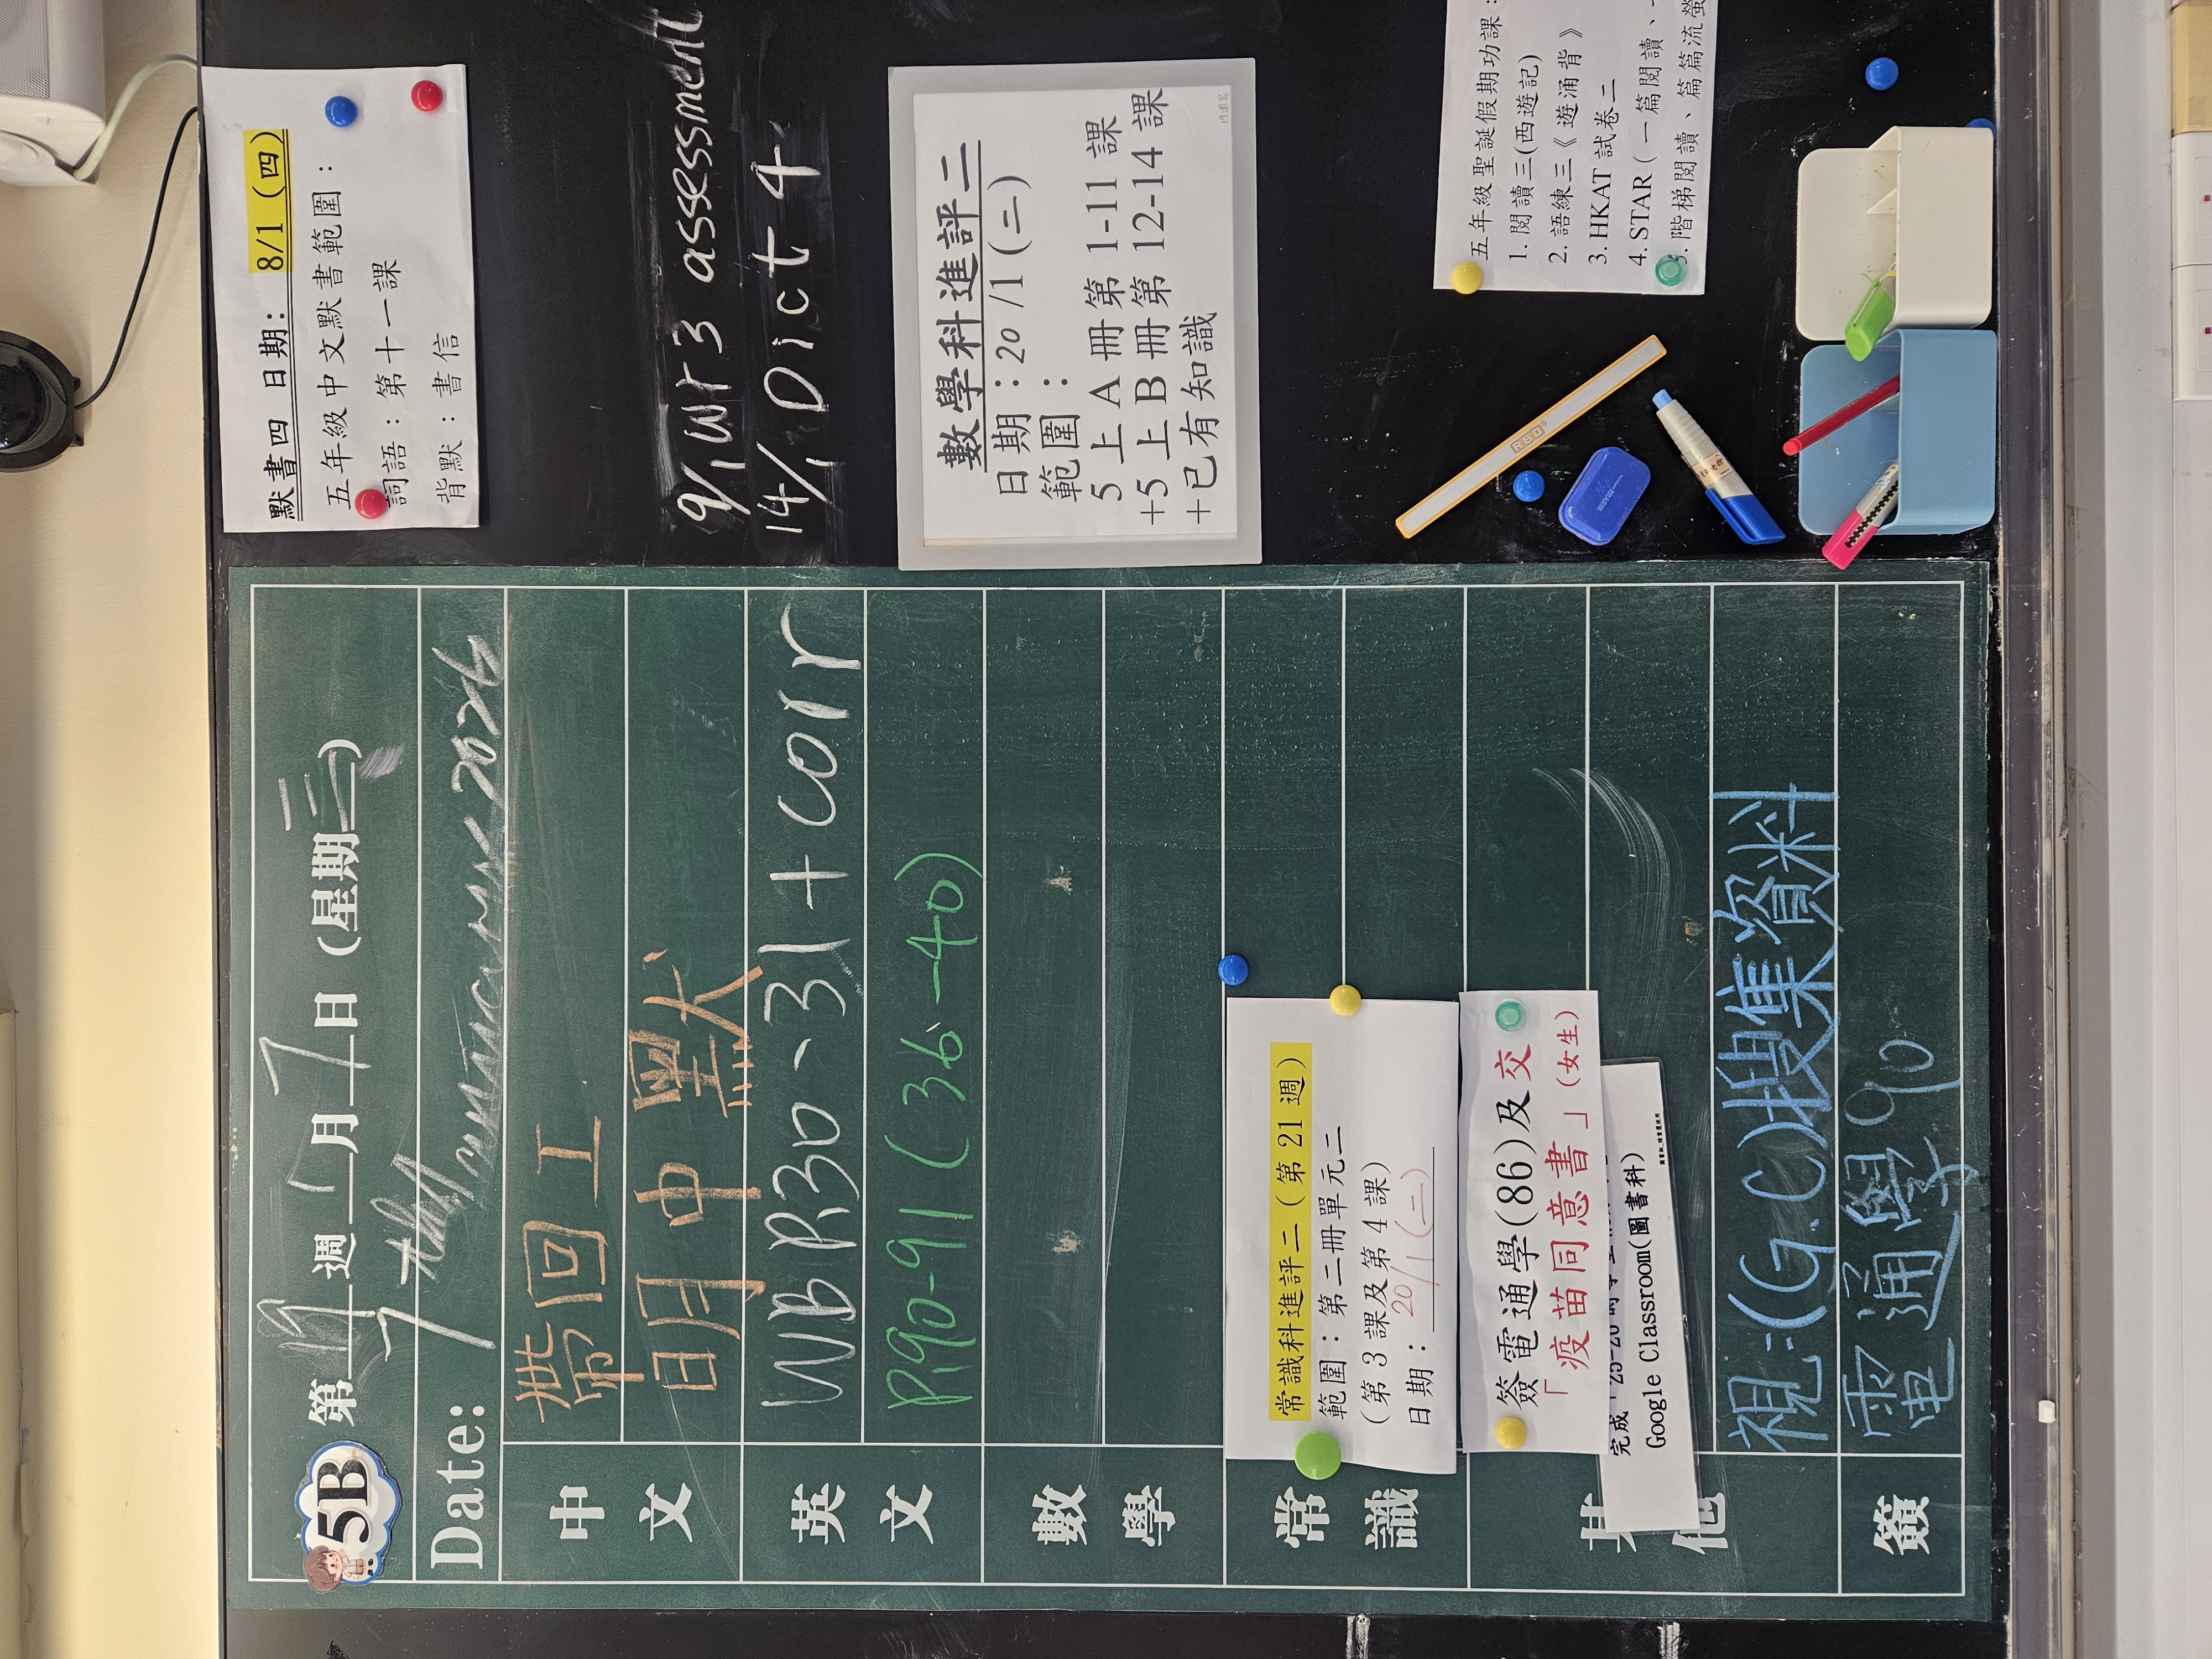 5B
第19週 1月7日(星期三)
Date: 7th January 2026
中文
帶回工
明中默
英文
WB P.30、31 + corr
P.90-91 (36-40)
數學
常識
常識科進評二(第 21 週)
範圍:第二冊單元二
(第 3 課及第 4 課)
日期:20/1(二)
其他
簽電通學(86)及交
「疫苗同意書」(女生)
完成
Google Classroom(圖書科)
視:(G.C)搜集資料
簽
電通學90
默書四 日期: 8/1 (四)
五年級中文默書範圍:
詞語:第十一課
背默:書信
9/1 Wr 3 assessment
14/1 Dict 4
數學科進評二
日期:20/1(二)
範圍:
5 上 A 冊第 1-11 課
+5 上 B 冊第 12-14 課
+已有知識
五年級聖誕假期功課:
1. 閱讀三(西遊記)
2. 語練三《遊涌背》
3. HKAT 試卷二
4. STAR(一篇閱讀、
5. 階梯閱讀、篇篇流螢
RED